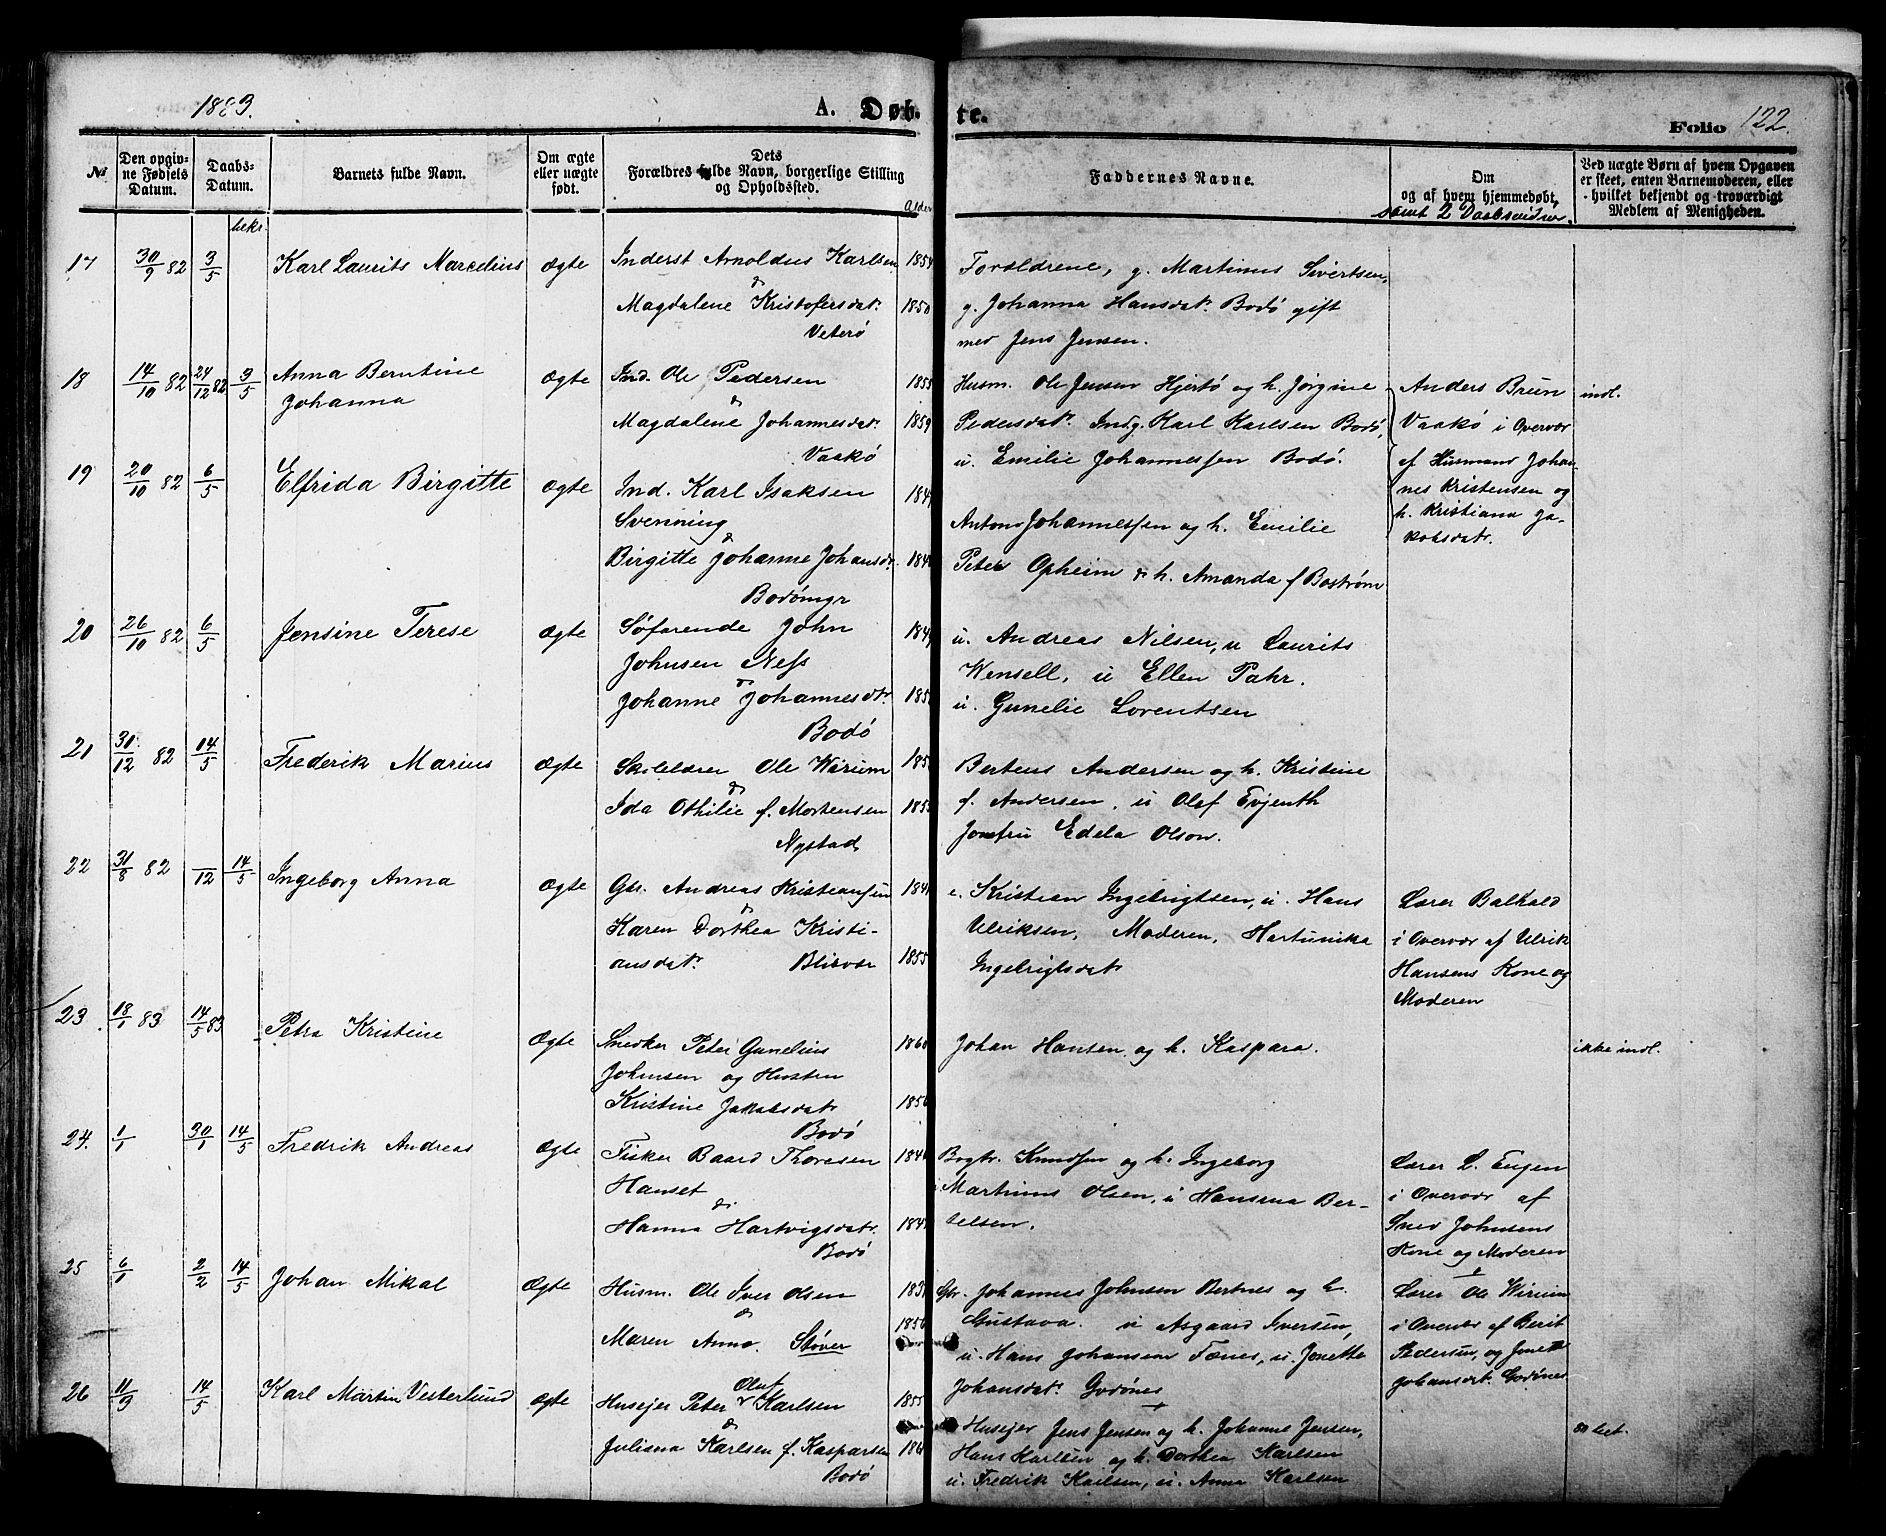 1883.
A. Døb-
te.
Folio 122.
№
Den opgiv-
ne Fødsels
Datum.
Daabs-
Datum.
Barnets fulde Navn.
Om ægte
eller uægte
født.
Dets
Forældres fulde Navn, borgerlige Stilling
og Opholdssted.
Alder
Faddernes Navne.
Om
og af hvem hjemmedøbt,
samt 2 Daabsvidner.
Ved uægte Børn af hvem Opgaven
er skeet, enten Barnemoderen, eller
hvilket bekjendt og troværdigt
Medlem af Menigheden.
bekr.
17 30/9 82 3/5 Karl Laurits Marcelius Ægte Inderst Arnoldus Karlsen 1854
&
Magdalene Kristofersdatr. 1850
Veterø
Forældrene, g. Martinus Sivertsen,
g. Johanna Hansdatr. Bodø gift
med Jens Jensen.
18 14/10 82 24/12 82 3/5 Anna Berntine
Johanna
Ægte Ind. Ole Pedersen 1855
&
Magdalene Johannesdatr. 1859
Vaakø
Husm. Ole Jensen Hjertø og h. Jørgine
Pedersdatr. Indg. Karl Karlsen Bodø,
u. Emilie Johannessen Bodø.
Anders Brun
Vaakø i Overvær
af Husmand Johan-
nes Kristensen og
h. Kristiana Ja-
kobsdatr.
indl.
19 20/10 82 6/5 Elfrida Birgitte Ægte Ind. Karl Isaksen 184
Svenning
&
Birgitte Johanne Johansdr. 184
Bodømyr
Anton Johannessen og h. Emilie
Peter Opheim & h. Amanda f Bostrøm
20 26/10 82 6/5 Jensine Terese Ægte Søfarende John 184
Johnsen Ness
&
Johanne Johannesdtr. 185
Bodø
u. Andreas Nilsen, u Laurits
Wensell, u Ellen Pahr.
u. Gunelie Lorentsen
21 31/12 82 14/5 Frederik Marius Ægte Skolelærer Ole Wirum 185
&
Ida Othilie f. Mortensen 185
Nystad
Berteus Andersen og h. Kristine
f. Andersen, u Olaf Evjenth
Jomfru Edela Olson.
22 31/8 82 /12 14/5 Ingeborg Anna Ægte Gbr. Andreas Kristiansen 184
&
Karen Dorthea Kristi-
ansdatr. Blixvær 1855
e. Kristian Ingebrigtsen, u. Hans
Ulriksen, Moderen, Hartunika
Ingebrigtsdatr
Lærer Balkald
i Overvær af Ulrik
Hansens Kone og
Moderen
23 18/1 83 14/5 83 Petra Kristine Ægte Snedker Peter Gunelius 1860
Johnsen og Hustru
Kristine Jakobsdatr 1850
Bodø
Johan Hansen og h. Kaspara.
ikke indl.
24. 1/1 30/1 14/5 Fredrik Andreas Ægte Fisker Baard Thoresen 184
Hanset
&
Hanna Hartvigsdatr. 184
Bodø
Bogtr. Knudsen og h. Ingeborg
Martinus Olsen, u Hansina Ber-
telsen.
Lærer L. Eugen
i Overvær af
Sned Johnsens
Kone og Moderen
25 6/1 2/2 14/5 Johan Mikal Ægte Husm. Ole Iver Olsen 183
&
Maren Anna. Støver 1850
Gbr. Johannes Johnsen Bertnes og h.
Gustava. u Asgaard Iversen,
u. Hans Johansen Fænes, u. Jonette
Johansdatr. Godønes
Lærer Ole Wirum
i Overvær af Berit
Pedersen, og Jonett
Johansdt. Godønes
26 11/3 14/5 Karl Martin Vesterlund Ægte Husejer Peter Oluf Karlsen 1855
&
Juliana Karlsen f. Kasparsen 186
Bodø
Husejer Jens Jensen og h. Johanne Jensen,
Hans Karlsen og h. Dorthea Karlsen
u. Fredrik Karlsen, u. Anna Karlsen